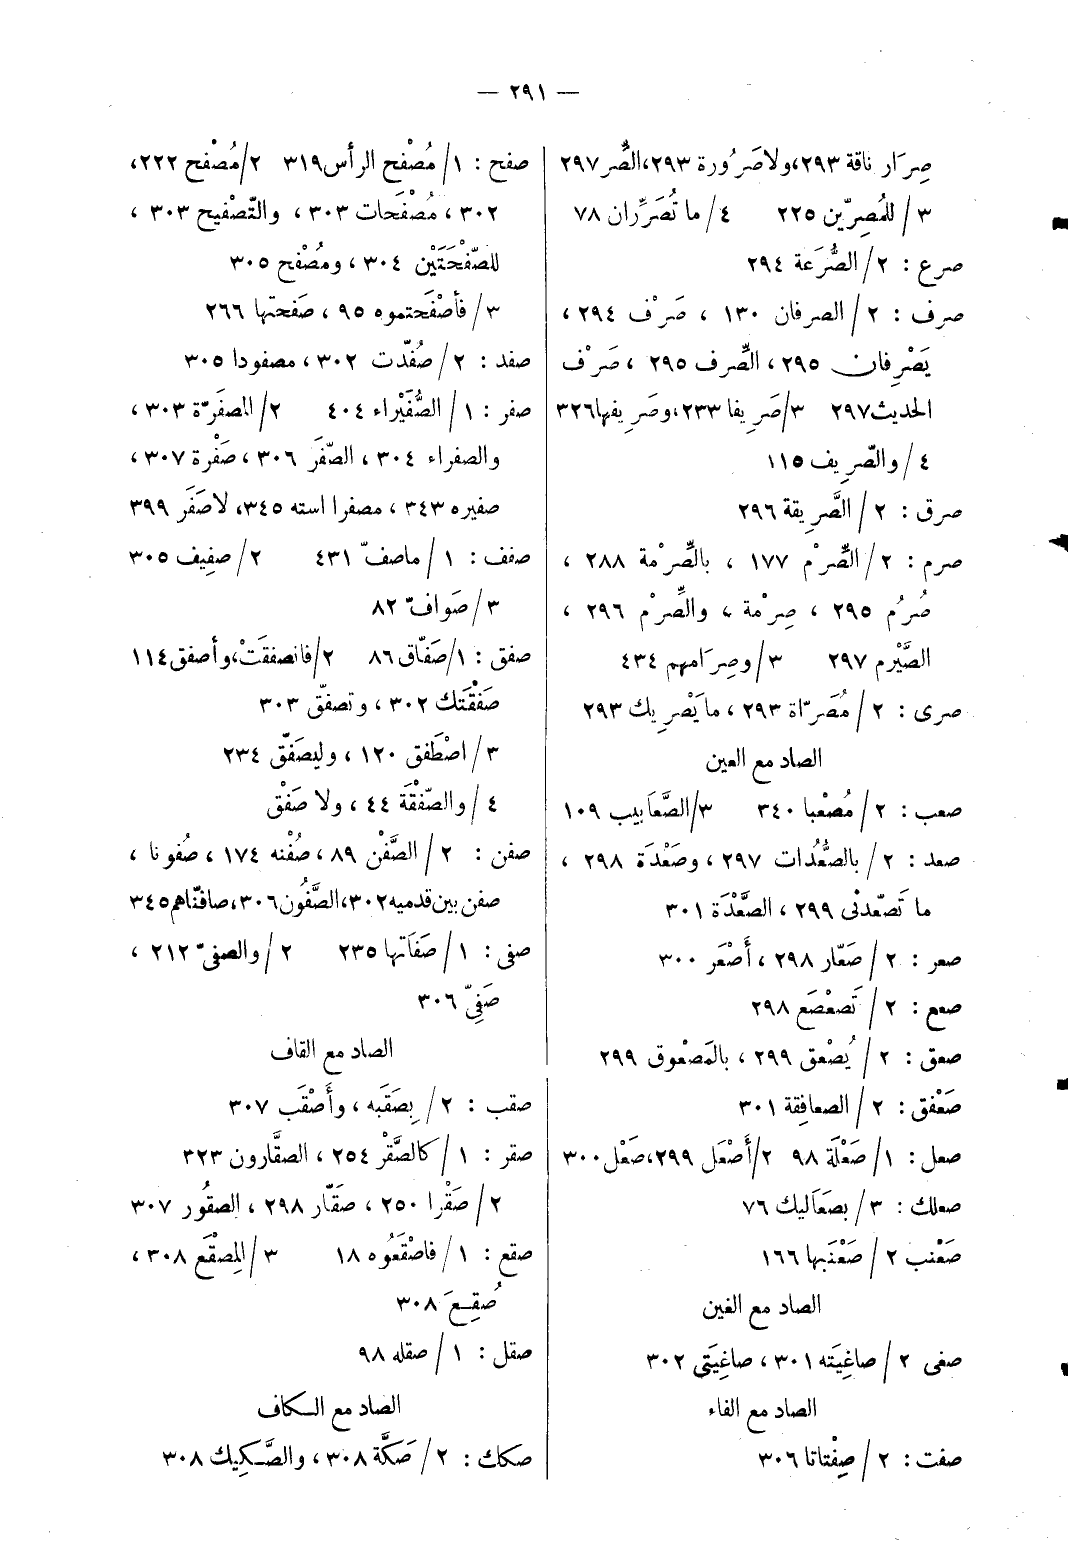 — ٢٩١ —
صِرَار ناقة ٢٩٣، ولا صَرُورة ٢٩٣، الصُّر ٢٩٧
٣/ للمُصِرّين ٢٢٥ ٤/ ما تُصَرِّران ٧٨
صرع : ٢/ الصُّرَعة ٢٩٤
صرف : ٢/ الصرفان ١٣٠ ، صَرْف ٢٩٤ ،
يَصْرِفان ٢٩٥ ، الصِّرف ٢٩٥ ، صَرْف
الحديث ٢٩٧ ٣/ صَرِيفا ٢٣٣، وصَرِيفها ٣٢٦
٤/ والصّرِيف ١١٥
صرق : ٢/ الصَّرِيقة ٢٩٦
صرم : ٢/ الصِّرْم ١٧٧ ، بالصِّرْمة ٢٨٨ ،
صُرُم ٢٩٥ ، صِرْمة ، والصِّرْم ٢٩٦ ،
الصَّيْرم ٢٩٧ ٣/ وصِرَامهم ٤٣٤
صرى : ٢/ مُصَرّاة ٢٩٣ ، ما يَصْرِيك ٢٩٣
الصاد مع العين
صعب : ٢/ مُصْعبا ٣٤٠ ٣/ الصَّعَابيب ١٠٩
صعد : ٢/ بالصُّعُدات ٢٩٧ ، وصَعْدَة ٢٩٨ ،
ما تَصَعّدنى ٢٩٩ ، الصَّعْدَة ٣٠١
صعر : ٢/ صَعّار ٢٩٨ ، أَصْعَر ٣٠٠
صعع : ٢/ تَصعْصَع ٢٩٨
صعق : ٢/ يُصْعق ٢٩٩ ، بالمَصْعوق ٢٩٩
صَعْفق : ٢/ الصعافِقة ٣٠١
صعل : ١/ صَعْلَة ٩٨ ٢/ أَصْعَل ٢٩٩، صَعْل ٣٠٠
صعلك : ٣/ بصَعَاليك ٧٦
صَعْنب ٢/ صَعْنَبها ١٦٦
الصاد مع الغين
صغى ٢/ صاغِيَته ٣٠١ ، صاغِيَتى ٣٠٢
الصاد مع الفاء
صفت : ٢/ صِفْتاتا ٣٠٦
صفح : ١/ مُصْفَح الرأس ٣١٩ ٢/ مُصْفح ٢٢٢،
٣٠٢ ، مُصْفَحَات ٣٠٣ ، والتّصْفيح ٣٠٣ ،
للصّفْحَتَيْن ٣٠٤ ، ومُصْفح ٣٠٥
٣/ فأصْفَحتموه ٩٥ ، صَفحتها ٢٦٦
صفد : ٢/ صُفّدت ٣٠٢ ، مصفودا ٣٠٥
صفر : ١/ الصُّفَيْراء ٤٠٤ ٢/ المصفَرّة ٣٠٣ ،
والصفراء ٣٠٤ ، الصّفَر ٣٠٦ ، صَفْرة ٣٠٧ ،
صفيره ٣٤٣ ، مصفرا استه ٣٤٥، لا صَفَر ٣٩٩
صفف : ١/ ماصفّ ٤٣١ ٢/ صفِيف ٣٠٥
٣/ صَوافّ ٨٢
صفق : ١/ صَفّاق ٨٦ ٢/ فانصفقَتْ، وأصفق ١١٤
صَفْقَتك ٣٠٢ ، وتصفّق ٣٠٣
٣/ اصْطَفق ١٢٠ ، وليصَفّق ٢٣٤
٤/ والصّفْقَة ٤٤ ، ولا صَفْق
صفن : ٢/ الصَّفْن ٨٩ ، صُفْنه ١٧٤ ، صُفونا ،
صفن بين قدميه ٣٠٢، الصَّفُون ٣٠٦، صافنّاهم ٣٤٥
صفى : ١/ صَفَاتها ٢٣٥ ٢/ والصفىّ ٢١٢ ،
صَفِىّ ٣٠٦
الصاد مع القاف
صقب : ٢/ بِصَقَبه ، وأَصْقَب ٣٠٧
صقر : ١/ كالصَّقْر ٢٥٤ ، الصقّارون ٣٢٣
٢/ صَقْرا ٢٥٠ ، صَقّار ٢٩٨ ، الصقُور ٣٠٧
صقع : ١/ فاصْقَعُوه ١٨ ٣/ المِصْقَع ٣٠٨ ،
صُقِعَ ٣٠٨
صقل : ١/ صقله ٩٨
الصاد مع الكاف
صكك : ٢/ صَكَّة ٣٠٨ ، والصَّكِيك ٣٠٨